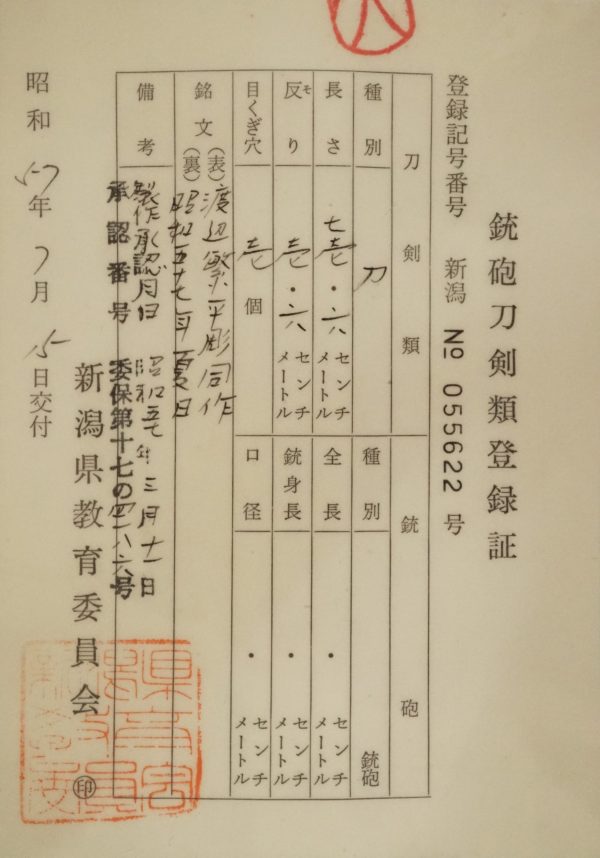 銃砲刀剣類登録証
登録記号番号 新潟 № 055622 号
刀剣類
種別 刀
長さ 七壱・六 センチメートル
反り 壱・六 センチメートル
目くぎ穴 壱個
銃砲
種別 銃砲
全長 ・ センチメートル
銃身長 ・ センチメートル
口径 ・ センチメートル
銘文 (表) 渡辺繁平彫同作
(裏) 昭和五十七年夏日
備考 製作承認月日 昭和五七年三月十一日
承認番号 委保第十七の四一八六号
昭和57年7月15日交付
新潟県教育委員会 ㊞